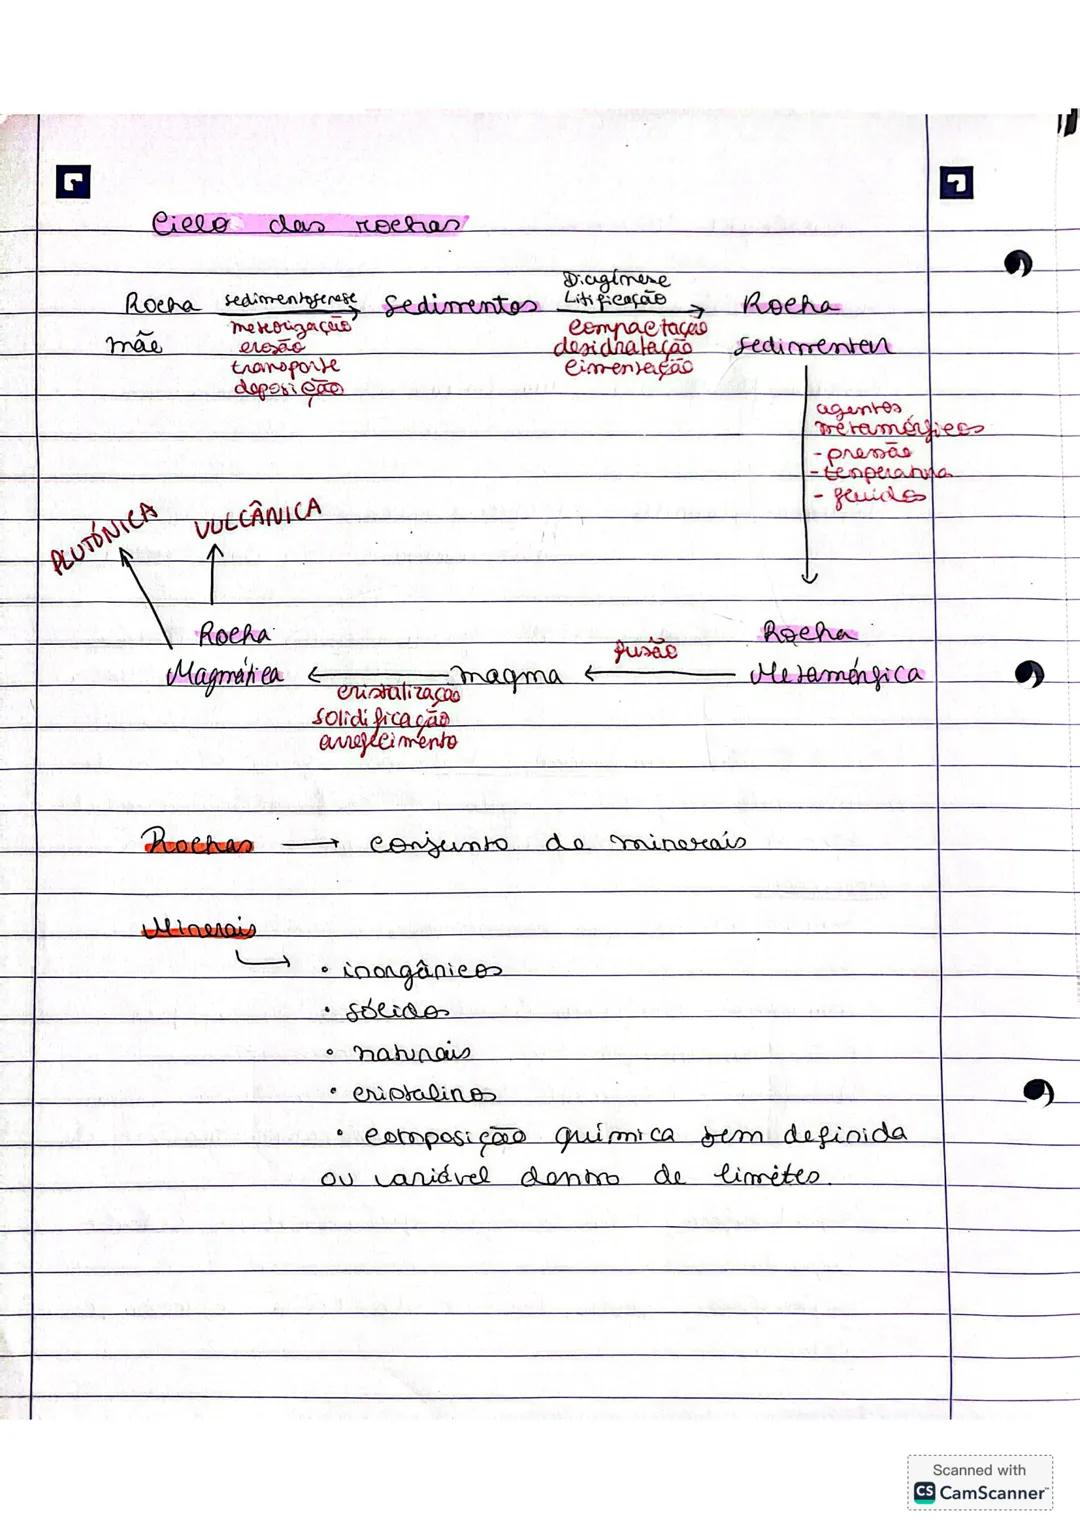 Ciclo das rochas
Rocha mãe
sedimentogenese
meteorização
erosão
transporte
deposição
Sedimentos
Diagénese
Litificação
compactação
desidratação
cimentação
Rocha
sedimentar
agentes
metamórficos
- pressão
- temperatura
- fluidos
PLUTÓNICA
VULCÂNICA
Rocha
Magmática
cristalização
solidificação
arrefecimento
magma
fusão
Rocha
Metamórfica
Rochas → conjunto de minerais
Minerais
• inorgânicos
• sólidos
• naturais
• cristalinos
• composição química bem definida
ou variável dentro de limites.
Scanned with
CS CamScanner